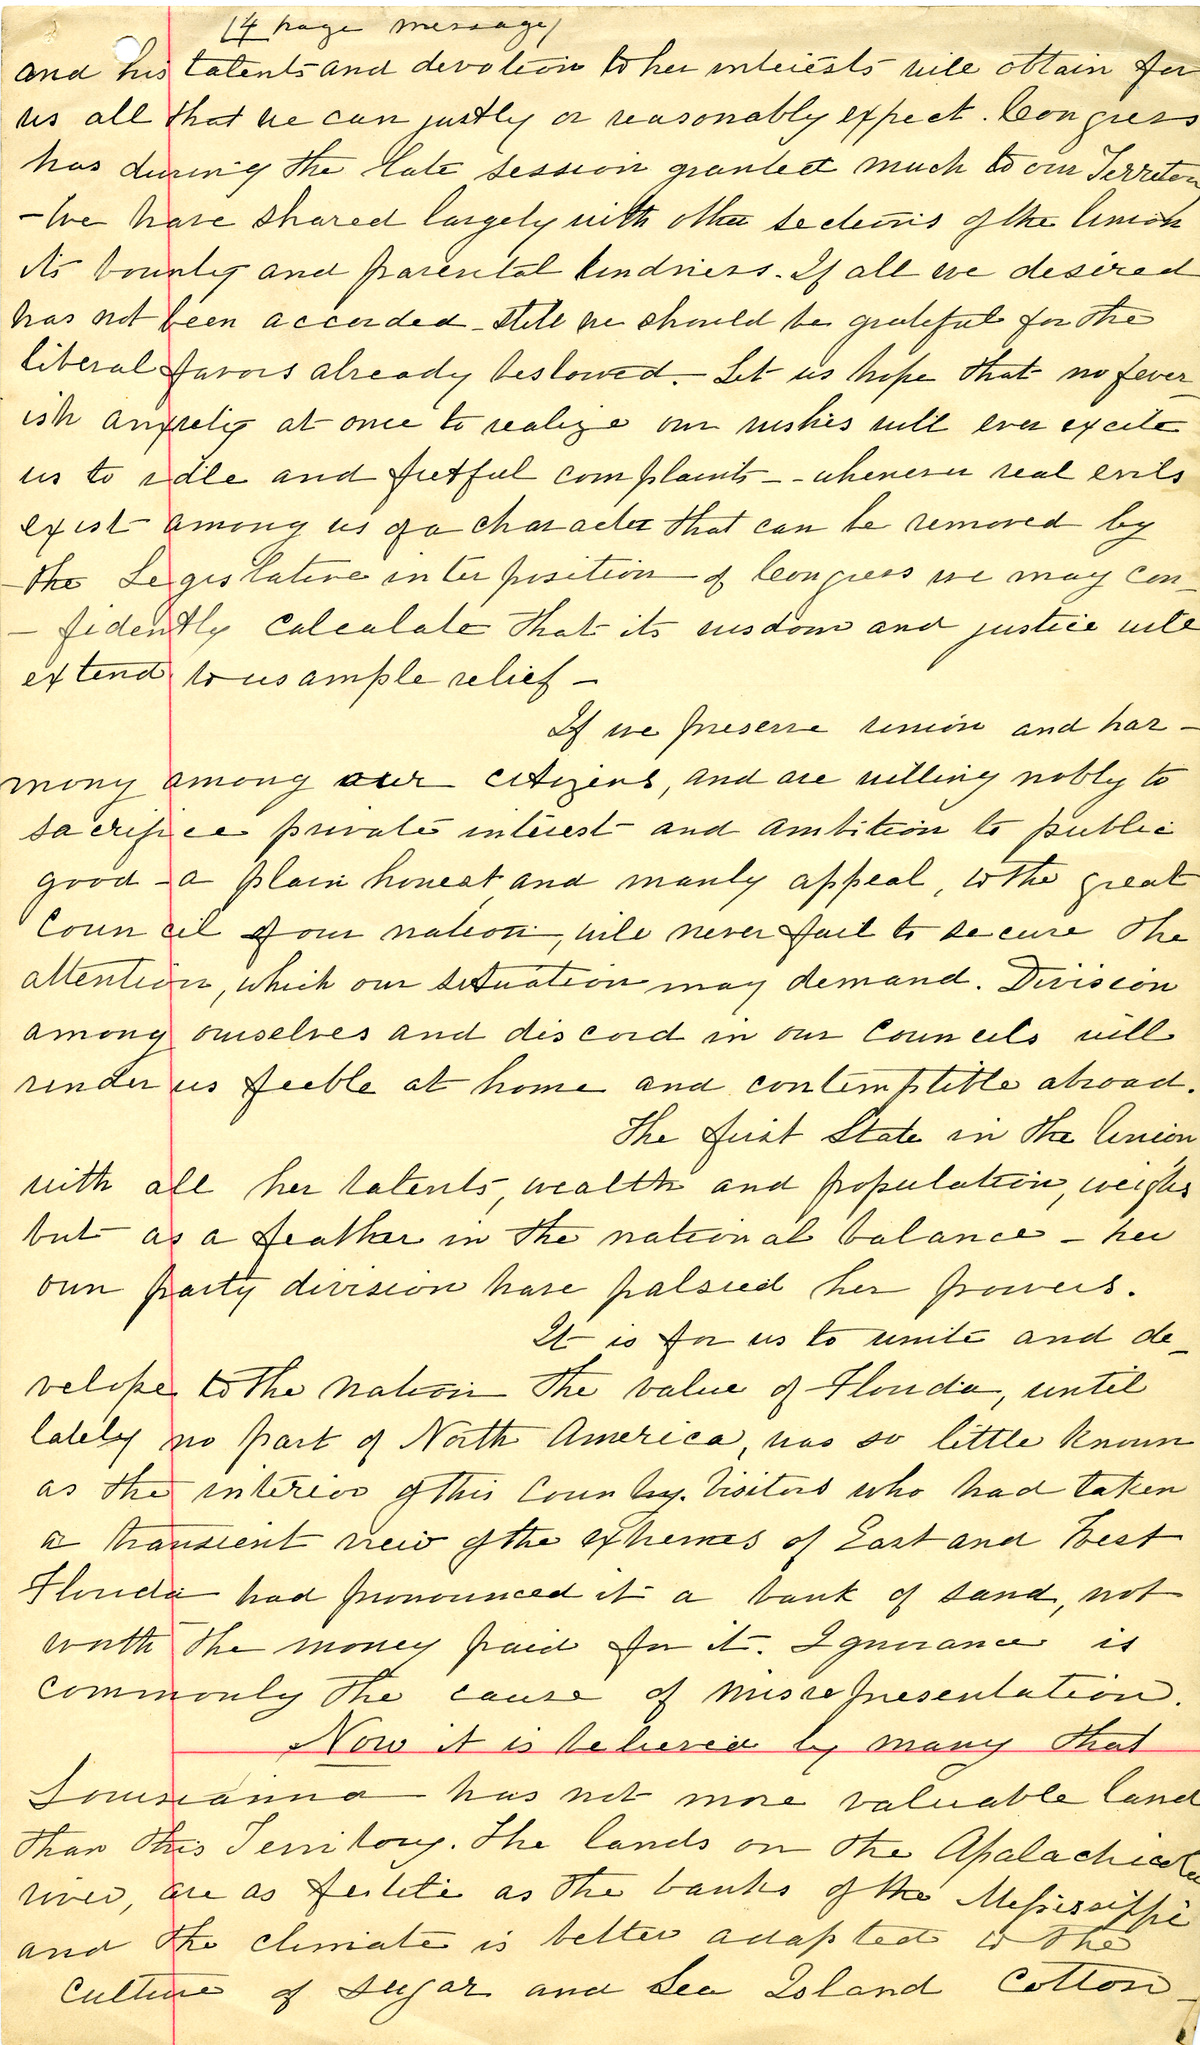 (4 page message)
and his talents and devotion to her interests will obtain for
us all that we can justly or reasonably expect. Congress
has during the late session granted much to our Territory
- We have shared largely with other sections of the Union
its bounty and parental kindness. If all we desired
has not been accorded - still we should be grateful for the
liberal favors already bestowed. - Let us hope that no fever
ish anxiety at once to realize our wishes will ever excite
us to idle and fretful complaints - - whenever real evils
exist among us of a character that can be removed by
the Legislative interposition of Congress we may con-
- fidently calculate that its wisdom and justice will
extend to us ample relief -
If we preserve union and har-
mony among our citizens, and are willing nobly to
sacrifice private interest and ambition to public
good - a plain honest and manly appeal, to the great
Council of our nation, will never fail to secure the
attention, which our situation may demand. Division
among ourselves and discord in our Councils will
render us feeble at home and contemptible abroad.
The first State in the Union
with all her talents, wealth and population, weighs
but as a feather in the national balance - her
own party division have palsied her powers.
It is for us to unite and de-
velope to the nation the value of Florida, until
lately no part of North America, was so little known
as the interior of this Country. Visitors who had taken
a transient view of the extremes of East and West
Florida had pronounced it a bank of sand, not
worth the money paid for it. Ignorance is
commonly the cause of misrepresentation.
Now it is believed by many that
Louisianna has not more valuable land
than this Territory. The lands on the Apalachicola
river, are as fertile as the banks of the Mississippi
and the climate is better adapted to the
culture of sugar and Sea Island Cotton -